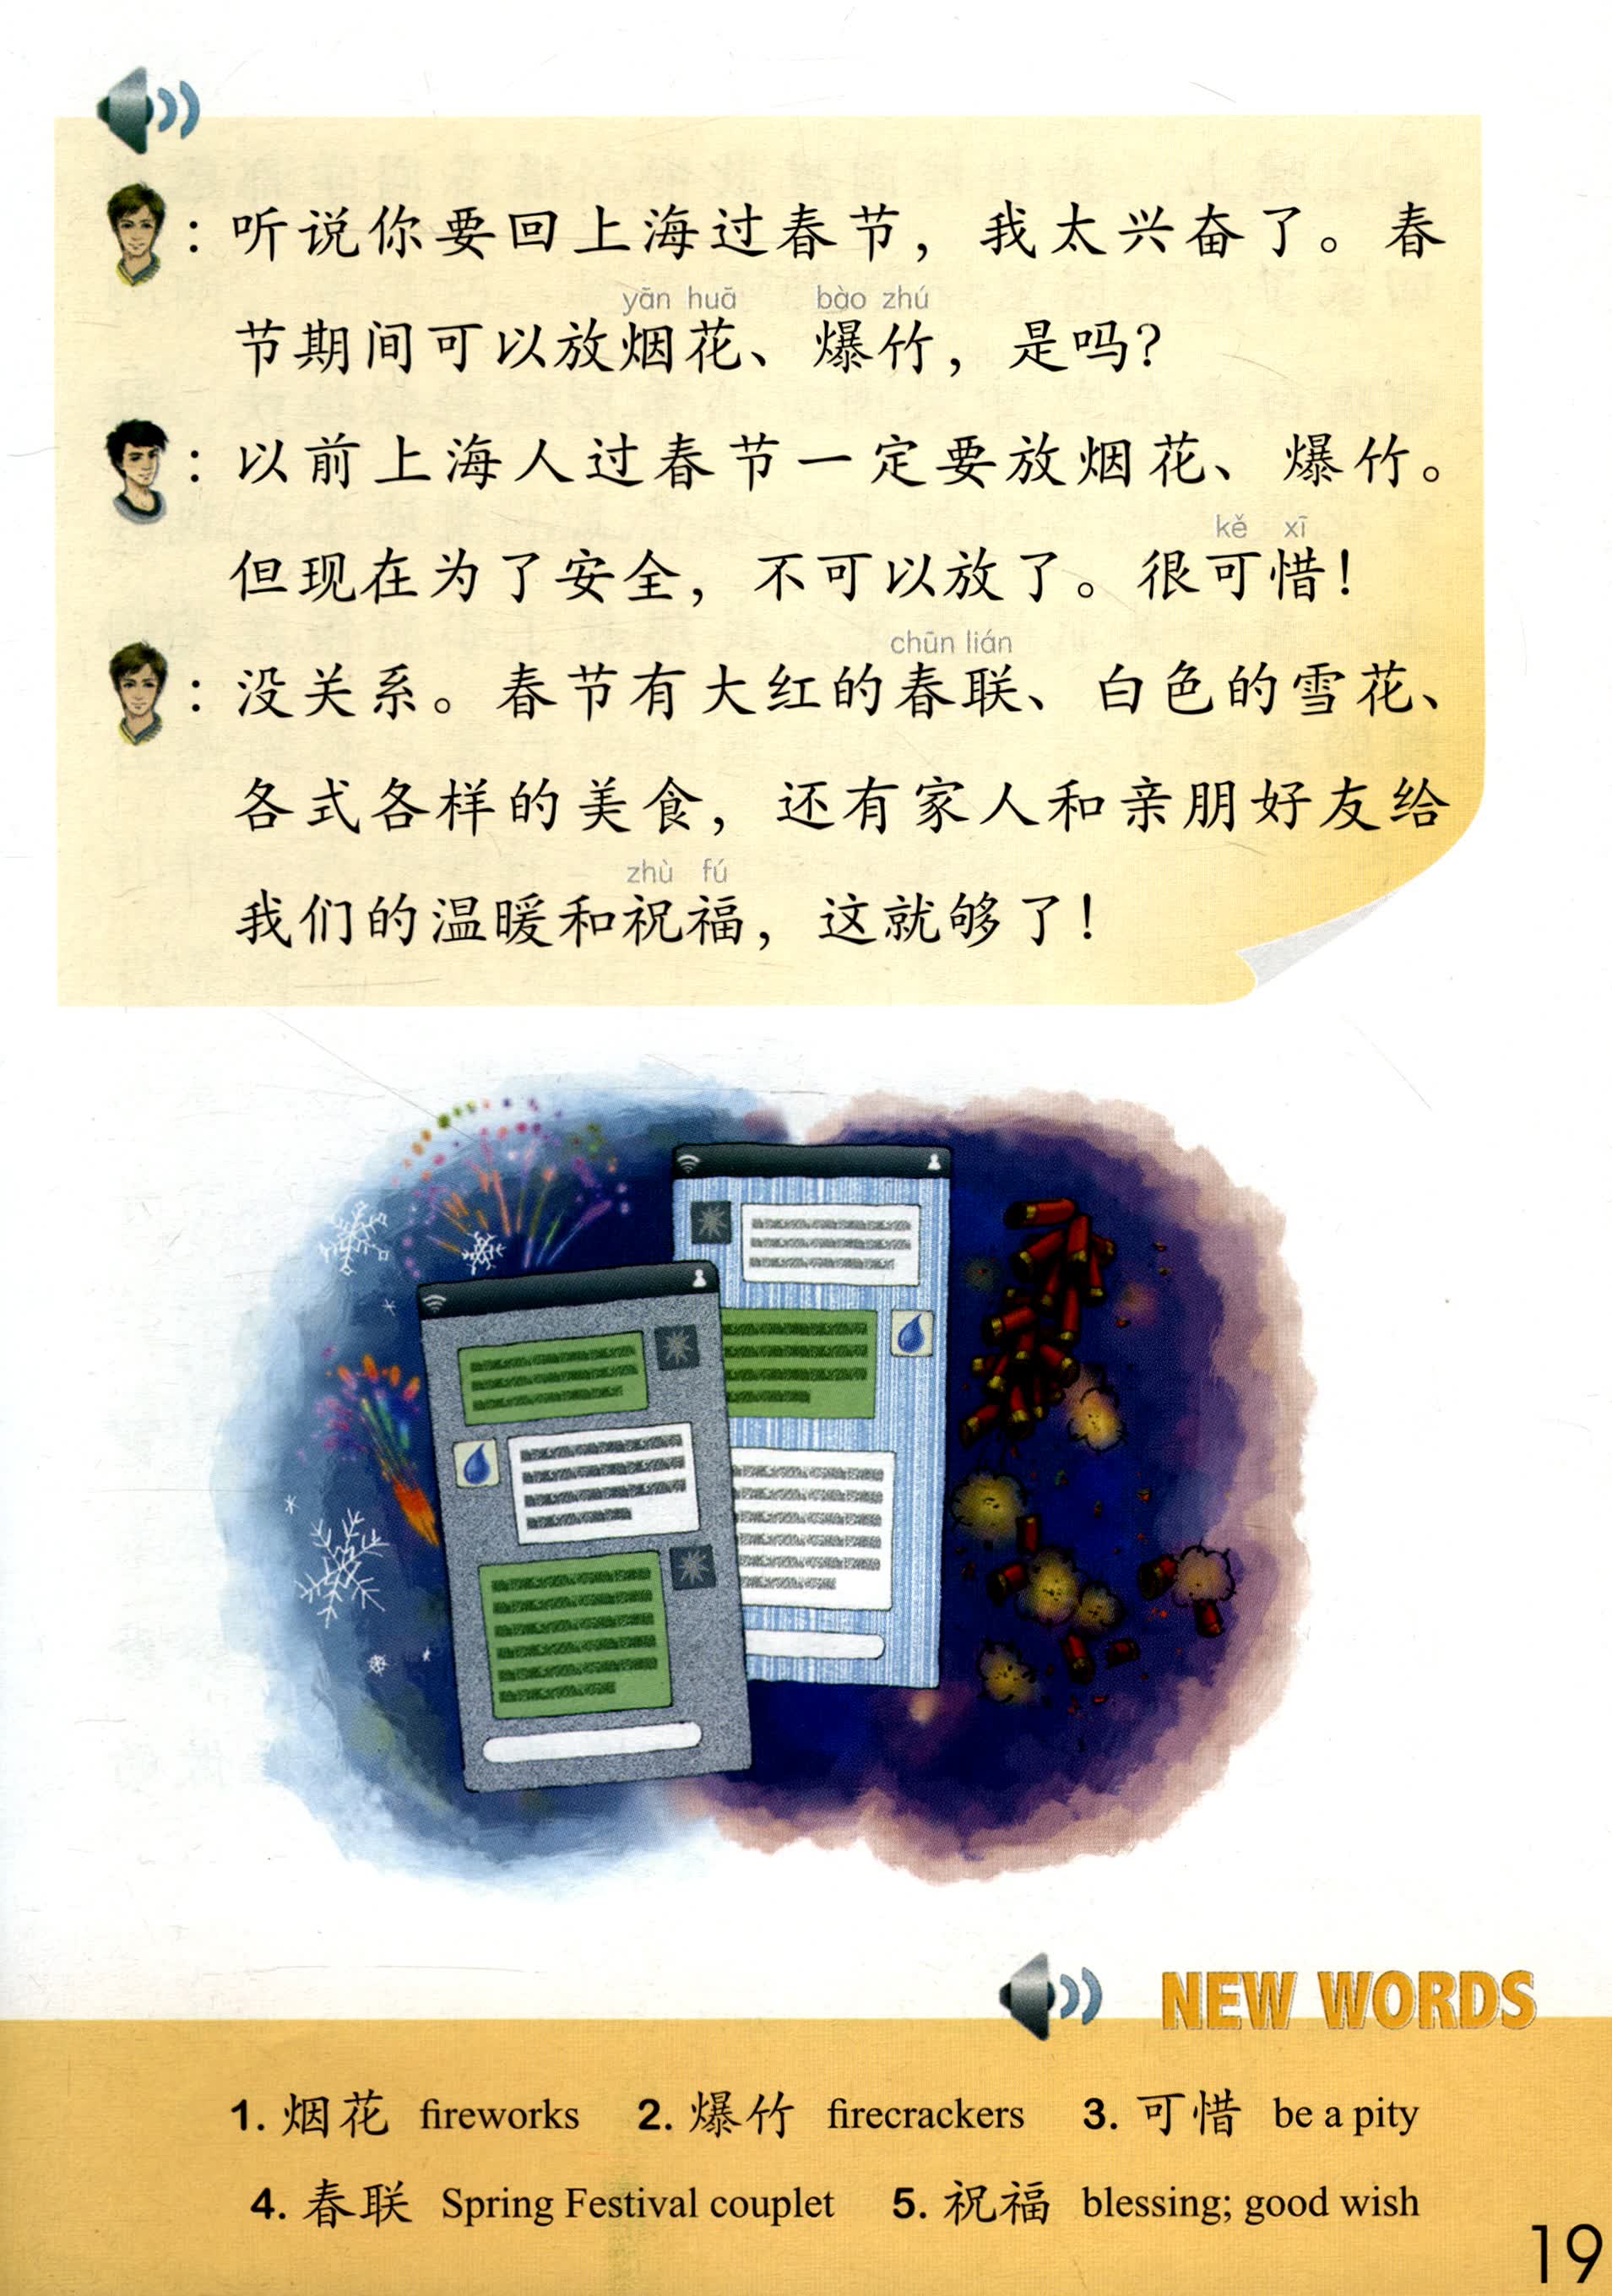 ：听说你要回上海过春节，我太兴奋了。春
yān huā bào zhú
节期间可以放烟花、爆竹，是吗？
：以前上海人过春节一定要放烟花、爆竹。
kě xī
但现在为了安全，不可以放了。很可惜！
chūn lián
：没关系。春节有大红的春联、白色的雪花、
各式各样的美食，还有家人和亲朋好友给
zhù fú
我们的温暖和祝福，这就够了！
NEW WORDS
1. 烟花 fireworks 2. 爆竹 firecrackers 3. 可惜 be a pity
4. 春联 Spring Festival couplet 5. 祝福 blessing; good wish
19